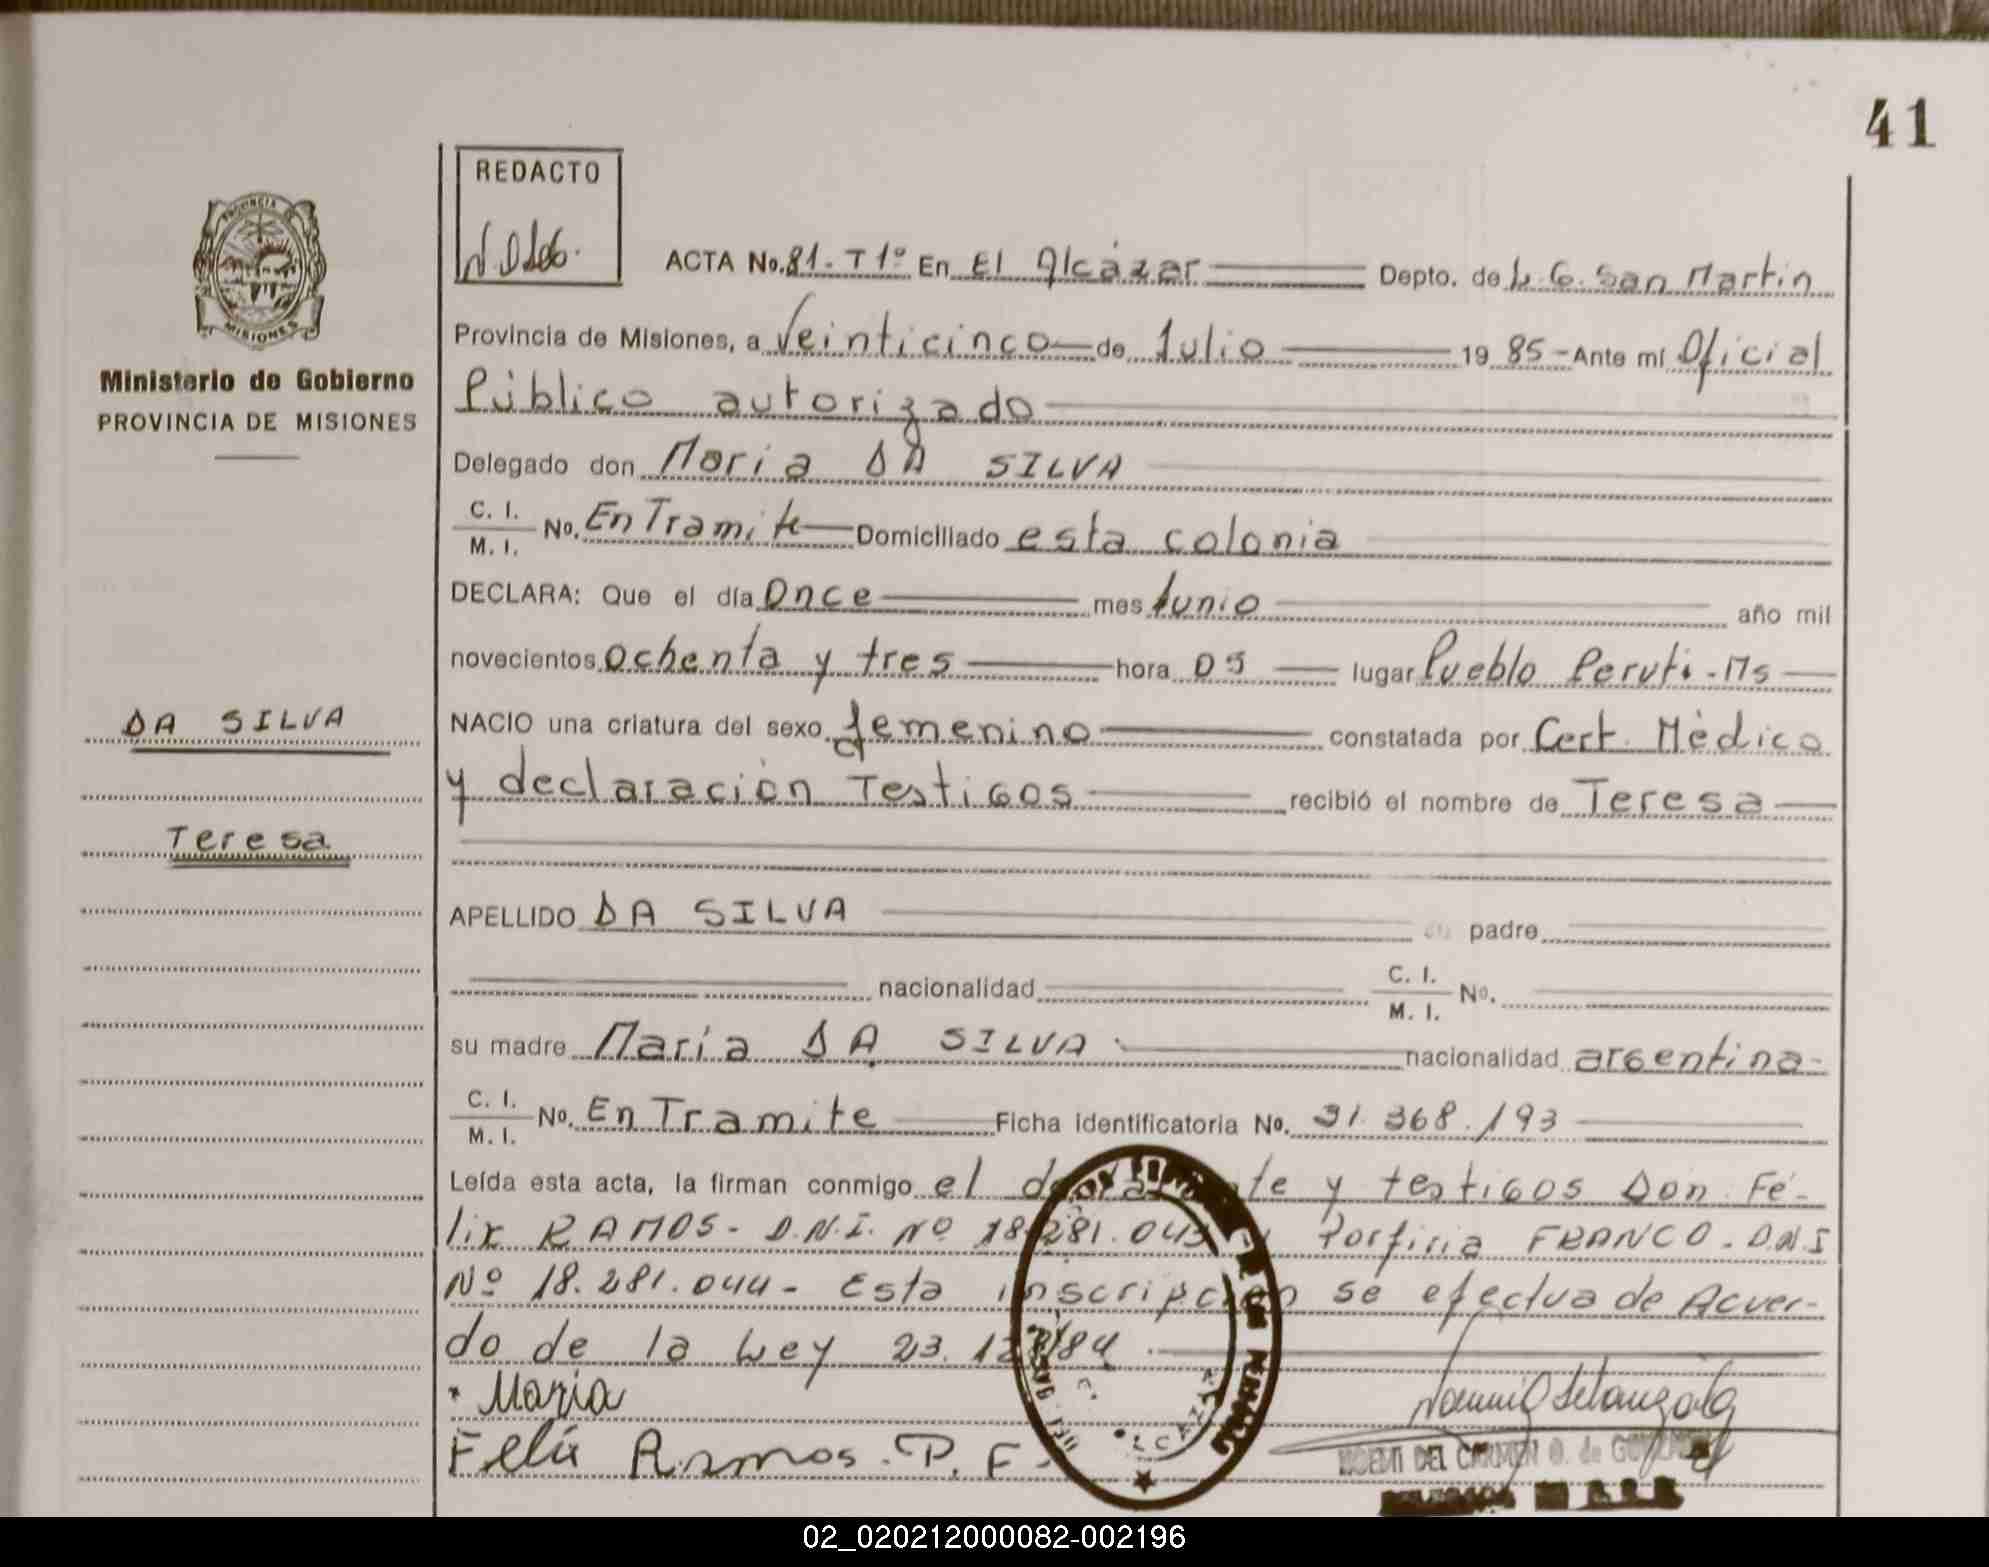 41
REDACTO
PROVINCIA DE
MISIONES
ACTA No. 81 - T 1º En El Alcázar Depto. de L. G. San Martin
Provincia de Misiones, a Veinticinco de Julio 19 85 - Ante mí Oficial
Ministerio de Gobierno
PROVINCIA DE MISIONES
Público autorizado
Delegado don Maria DA SILVA
C. I.
M. I. No. En Tramite Domiciliado esta colonia
DECLARA: Que el día Once mes Junio año mil
novecientos ochenta y tres hora 05 lugar Pueblo Peruti - Ms
DA SILVA
NACIO una criatura del sexo femenino constatada por Cert. Mèdico
y declaraciòn Testigos recibió el nombre de Teresa
Teresa
APELLIDO DA SILVA padre
nacionalidad C. I.
M. I. No.
su madre Maria DA SILVA nacionalidad argentina -
C. I.
M. I. No. En Tramite Ficha identificatoria No. 31.368.193
Leída esta acta, la firman conmigo el y testigos Don Fé-
lix RAMOS - D.N.I. Nº 18.281.043 Porfiria FRANCO - D.N.I
Nº 18.281.044 - Esta inscripción se efectua de Acuer-
do de la Ley 23.
Maria
Felix Ramos. P. F.
NOEMI DEL CARMEN O. de
02_020212000082-002196